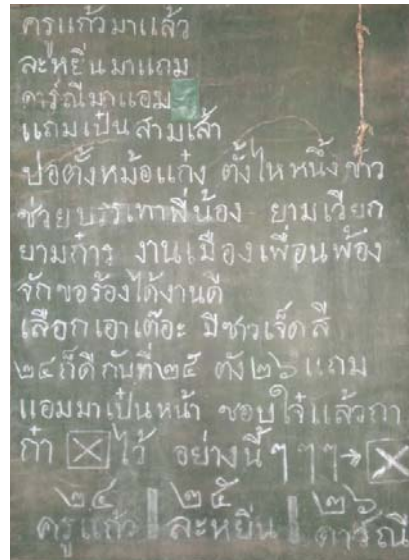 ครูแก้วมาแล้ว
ละหยิ่นมาแถม
ดารณีมาแอม
แถมเป็นสามเส้า
ปอตั้งหม้อแก๋ง ตั้งไหหนึ้งข้าว
ช่วยบรรเทาพี่น้อง ยามเวียก
ยามก๋าร งานเมืองเพื่อนพ้อง
จักขอร้องได้งานดี
เลือกเอาเต๊อะ มีซาวเจ็ดสี
๒๔ ก็ดี กับที่ ๒๕ ตัง ๒๖ แถม
แอมมาเป็นหน้า ชอบใจ๋แล้วกา
ก๋า ☒ ไว้ อย่างนี้ ๆ ๆ ๆ → ☒
๒๔ | ๒๕ | ๒๖
ครูแก้ว | ละหยิ่น | ดารณี